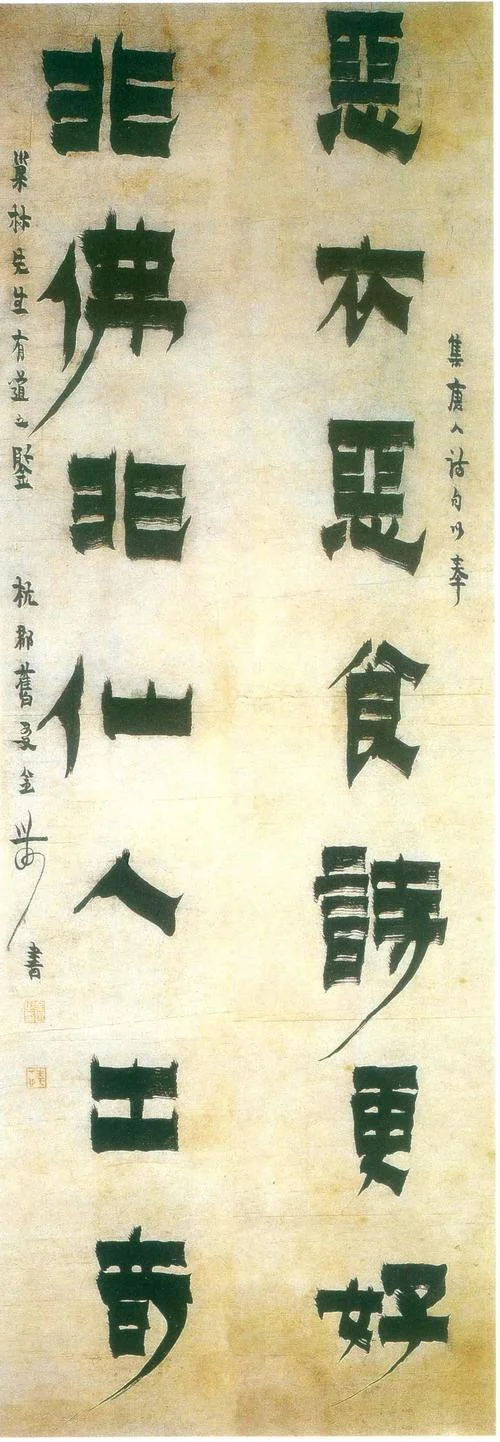 集唐人詩句以奉
惡衣惡食詩更好
非佛非仙人出奇
巢林先生有道之鑒 杭郡舊友金農書